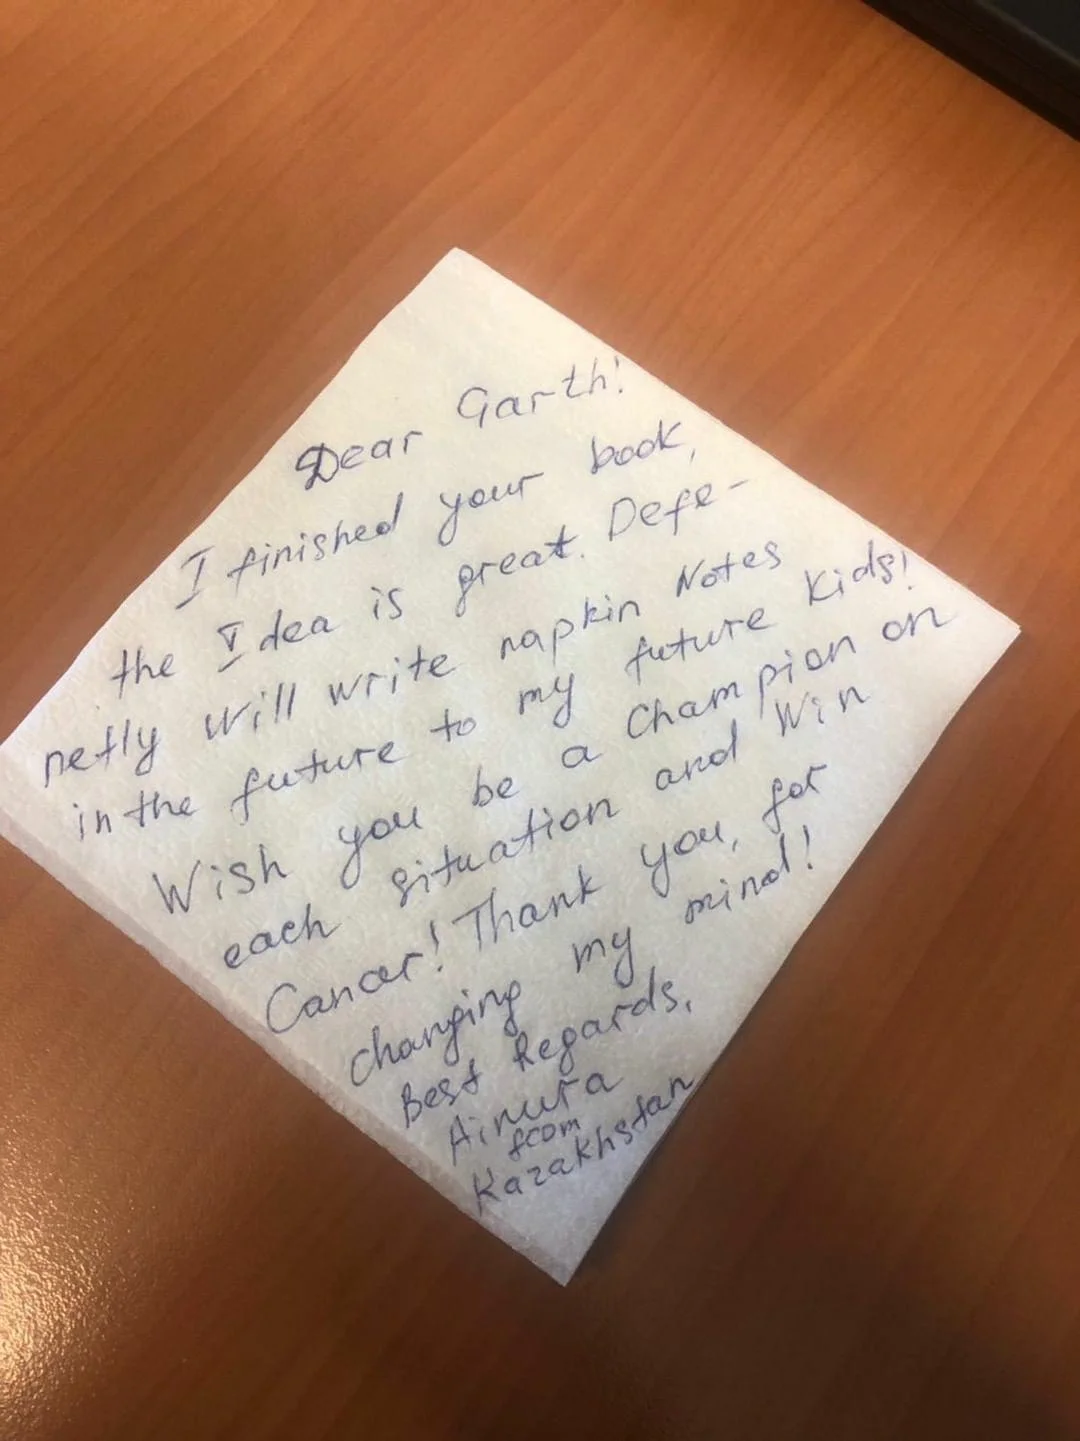 Dear Garth!
I finished your book,
the Idea is great. Defe-
netly will write napkin Notes
in the future to my future Kids!
Wish you be a Champion on
each situation and Win
Cancer! Thank you, for
changing my mind!
Best Regards,
Ainura
from
Kazakhstan